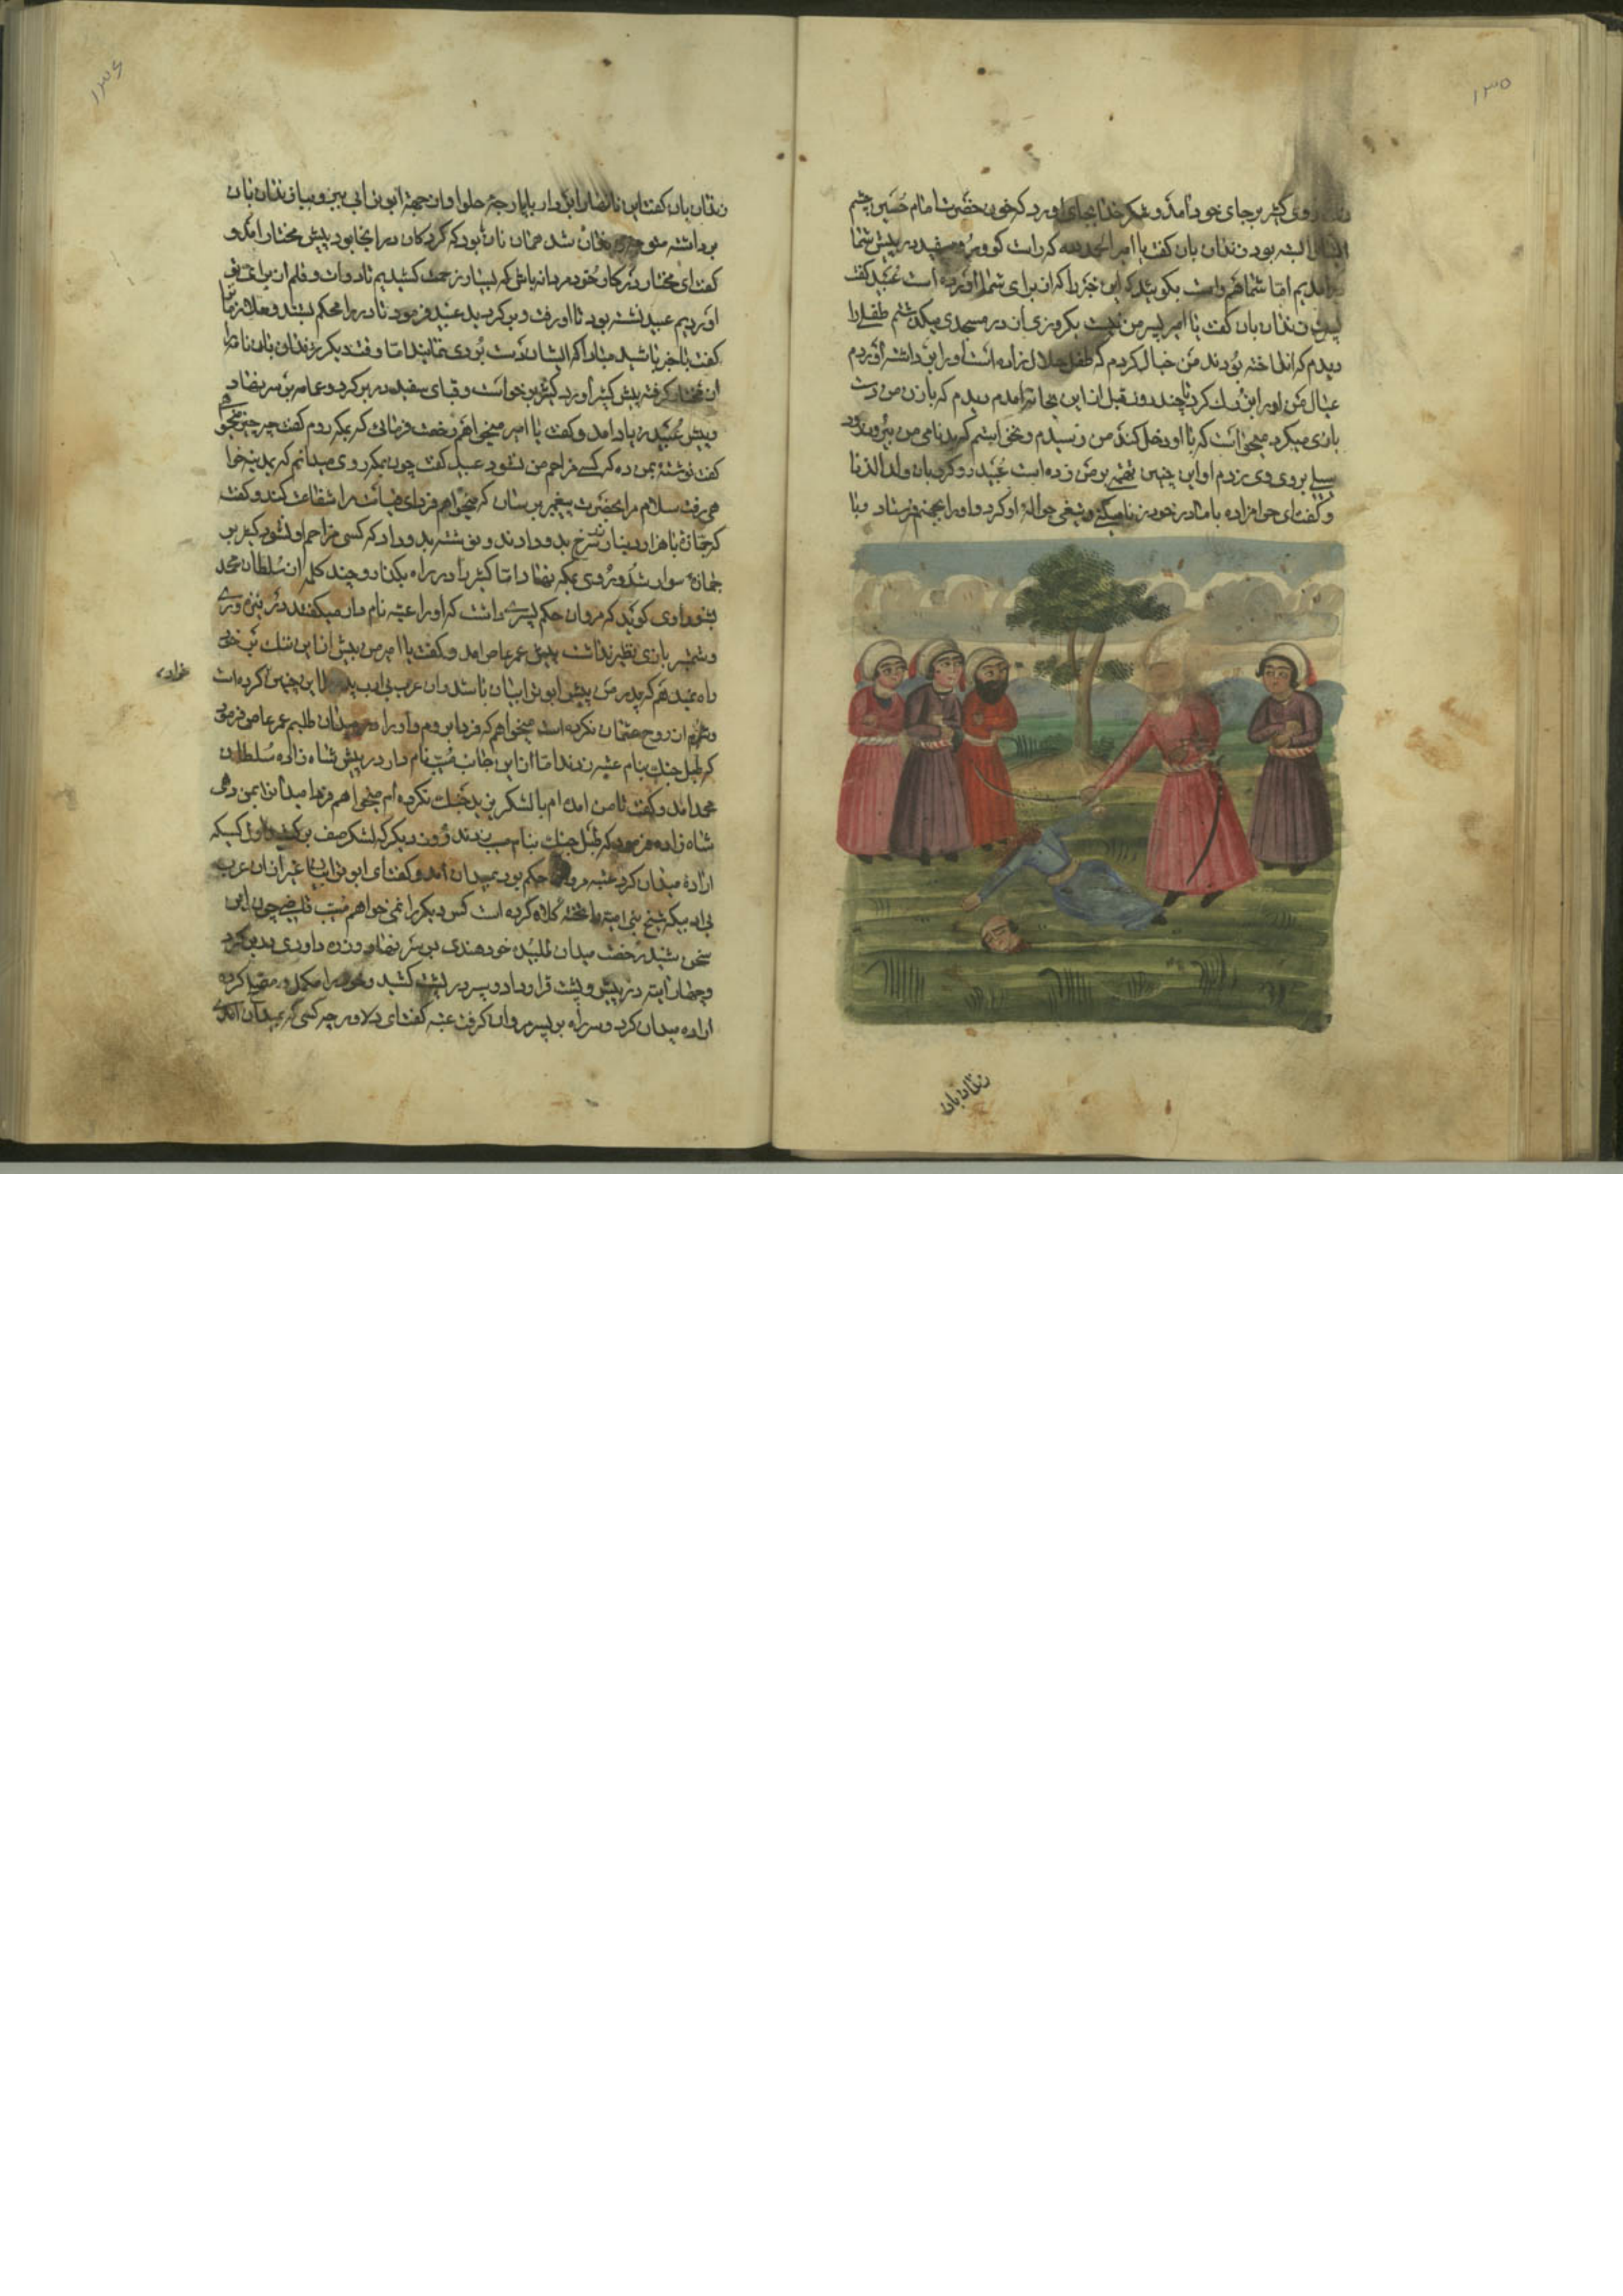 ۱۳۵
روی کثیر بر جای خود آمد و شکر خدا بجای آورد که خون حضرت امام حسین چشم
بسته بود زندان بان کفت یا امیر الحمد لله که راست کو و رو سفید در پیش شما
برآمدیم اما شما هم راست بکویید که این خبر را که از برای شما آورده است عبید کفت
پسرت زندان بان کفت یا امیر پسر من نیست یکروزی از در مسجدی میکذشتم طفلی را
دیدم که انداخته بودند من خیال کردم که طفل حلال زاده است او را برداشته آوردم
عیال من او را بزرک کرد تا چند روز قبل از این بخانه آمدم دیدم که با زن من دست
بازی میکرد میخواست که با او دخل کند من رسیدم و نخواستم که بدنامی من بیرون رود
سیلی بروی وی زدم او این چنین تهمتی بر من زده است عبید رو کرد بان ولد الزنا
و کفت ای حرامزاده با مادر خود زنا میکنی و تیغی حواله او کرد و او را بجهنم فرستاد و با
زندان بان
۱۳۶
زندان بان کفت این نانها را بردار با پارچه حلوا و از جهة ابو ترابی ببر و بیا زندان بان
برداشته متوجه زندان شد همان نان بود که کردکان در انجا بود پیش مختار آمد و
کفت ای مختار در کار خود مردانه باش که بسیار زحمت کشیدیم تا دوات و قلم از برای تو
آوردیم عبید نشسته بود تا او رفت و بر کردید عبید فرمود تا در را محکم بستند و غلامان را
کفت با خبر باشید مبادا که ایشان دست بردی نمایند اما وقت دیکر زندان بان نامه را
از مختار کرفته پیش کثیر آورد کثیر برخواست و قبای سفید در بر کرد و عمامه بر سر نهاد
و پیش عبید زیاد آمد و کفت یا امیر میخواهم رخصت فرمائی که بمکه روم کفت چه چیز میخواهی
کفت نوشته بمن ده که کسی مزاحم من نشود عبید کفت چون بمکه روی میدانم که بمدینه خوا
هی رفت سلام مرا بحضرت پیغمبر برسان که میخواهم فردای قیامت مرا شفاعت کند و کفت
که جمازهٔ با هزار دینار سرخ بدو دادند و نوشته بدو داد که کسی مزاحم او نشود کثیر بر
جمازه سوار شد و روی بمکه نهاد اما کثیر را در راه بکذار و چند کلمه از سلطان محمد
بشنو راوی کوید که مروان حکم پسری داشت که او را عتبه نام دار میکفتند در نیزه وری
و شمشیر بازی نظیر نداشت پیش عمر عاص آمد و کفت یا امیر من بیش از این ننک بر خود
راه نمیدهم که پدر من پیش ابو ترابیان باشد و آن عرب بی ادب پدر مرا این چنین کرده است
و شرم از روح عثمان نکرده است میخواهم که فردا بروم و او را در میدان طلبم عمر عاص فرمود
که طبل جنک بنام عتبه زدند اما از این جانب مسیب نام دار در پیش شاه زاده سلطان
محمد آمد و کفت تا من آمده ام با لشکر یزید جنک نکرده ام میخواهم فردا میدان را بمن دهی
شاه زاده فرمود که طبل جنک بنام مسیب زدند روز دیکر که لشکر صف بر کشید اول کسیکه
ارادهٔ میدان کرد عتبه مروان حکم بود بمیدان آمد و کفت ای ابو ترابیان غیر از آن عرب
بی ادبیکه شیخ بنی امیه را تخته کلاه کرده است کس دیکر را نمی خواهم مسیب قعقاع چون این
سخن شنید رخصت میدان طلبید خود هندی بر سر نهاد و زره داودی در بر کرد
و چهار آینه در پیش و پشت قرار داد و سپر در پشت کشید و خود را مکمل و مصلح کرده
اراده میدان کرد و سر راه بر پسر مروان کرفت عتبه کفت ای دلاور چه کسی که بمیدان آمدی